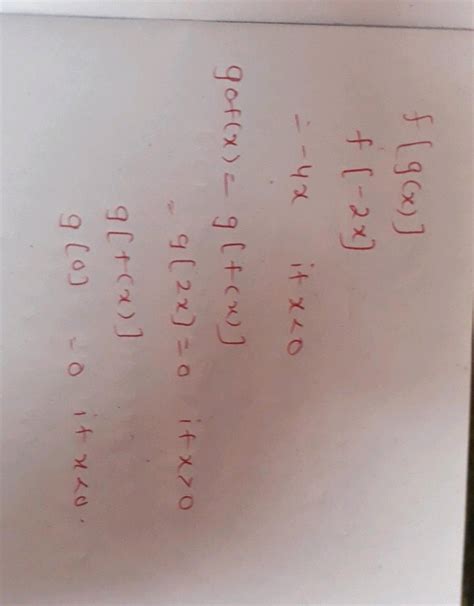 f[g(x)]
f[-2x]
= -4x if x<0
gof(x) = g[f(x)]
= g[2x] = 0 if x>0
g[f(x)]
g[0] = 0 if x<0.